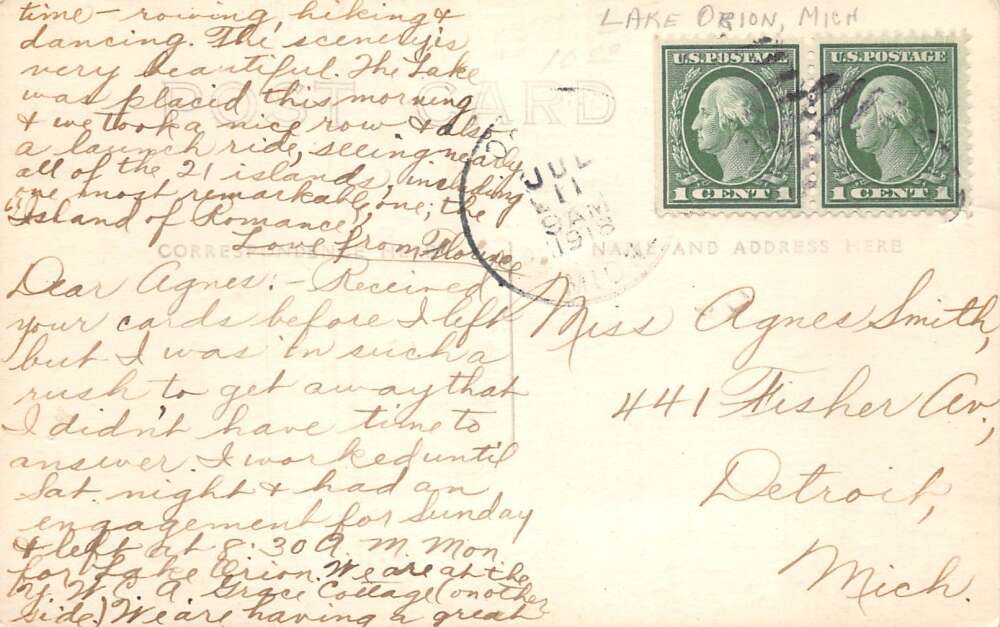 LAKE ORION, MICH
10.00
U.S.POSTAGE
1 CENT 1
U.S.POSTAGE
1 CENT 1
POST CARD
JUL
11
AM
MICH
CORRESPONDENCE HERE
NAME AND ADDRESS HERE
Dear Agnes:- Received
your cards before I left
but I was in such a
rush to get away that
I didn't have time to
answer. I worked until
Sat. night & had an
engagement for Sunday
& left at 8:30 A.M. Mon.
for Lake Orion. We are at the
Y.W.C.A. Grace Cottage (on other
side.) We are having a great
time - rowing, hiking &
dancing. The scenery is
very beautiful. The Lake
was placid this morning
& we took a nice row & also
a launch ride, seeing nearly
all of the 21 islands, including
one most remarkable one; the
"Island of Romance."
Love from Florence
Miss Agnes Smith,
441 Fisher Av.,
Detroit,
Mich.